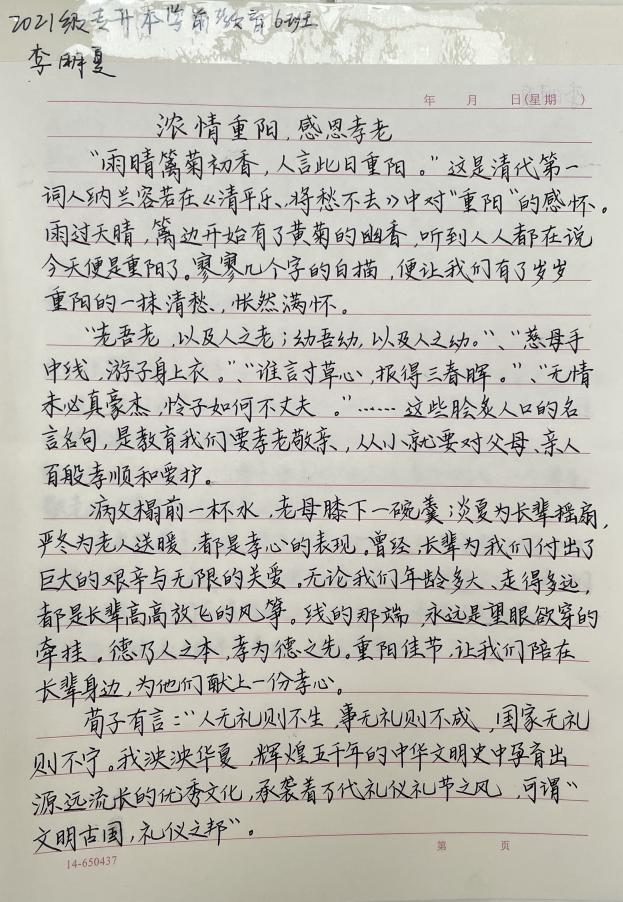 2021级专升本学前教育6班
李明夏
年 月 日(星期 )
浓情重阳,感恩孝老
"雨晴篱菊初香,人言此日重阳。"这是清代第一
词人纳兰容若在《清平乐、将愁不去》中对"重阳"的感怀。
雨过天晴,篱边开始有了黄菊的幽香,听到人人都在说
今天便是重阳了。寥寥几个字的白描,便让我们有了岁岁
重阳的一抹清愁,怅然满怀。
"老吾老,以及人之老;幼吾幼,以及人之幼。"、"慈母手
中线,游子身上衣。"、"谁言寸草心,报得三春晖。"、"无情
未必真豪杰,怜子如何不丈夫。"……这些脍炙人口的名
言名句,是教育我们要孝老敬亲,从小就要对父母、亲人
百般孝顺和爱护。
病父榻前一杯水,老母膝下一碗羹;炎夏为长辈摇扇,
严冬为老人送暖,都是孝心的表现。曾经,长辈为我们付出了
巨大的艰辛与无限的关爱。无论我们年龄多大、走得多远,
都是长辈高高放飞的风筝。线的那端,永远是望眼欲穿的
牵挂。德乃人之本,孝为德之先。重阳佳节,让我们陪在
长辈身边,为他们献上一份孝心。
荀子有言:"人无礼则不生,事无礼则不成,国家无礼
则不宁。我泱泱华夏,辉煌五千年的中华文明史中孕育出
源远流长的优秀文化,承袭着万代礼仪礼节之风,可谓"
文明古国,礼仪之邦"。
14-650437
第 页